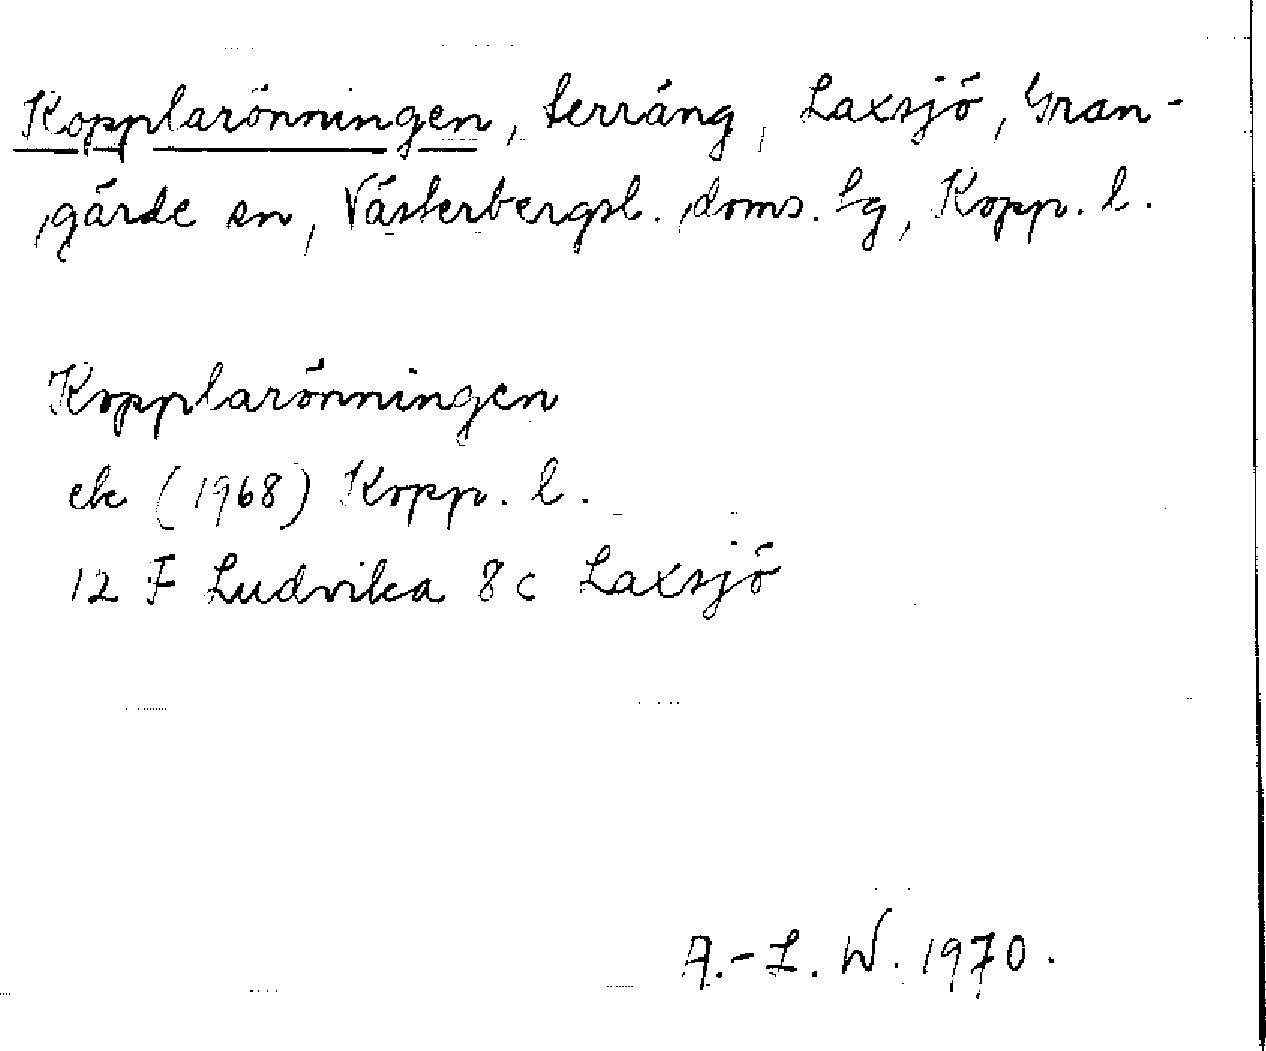 Kopplarönningen, terräng, Laxsjö, Gran-
gärde sn, Västerbergsl. doms. tg, Kopp. l.
Kopplarönningen
ek (1968) Kopp. l.
12 F Ludvika 8 c Laxsjö
A.-L. W. 1970.